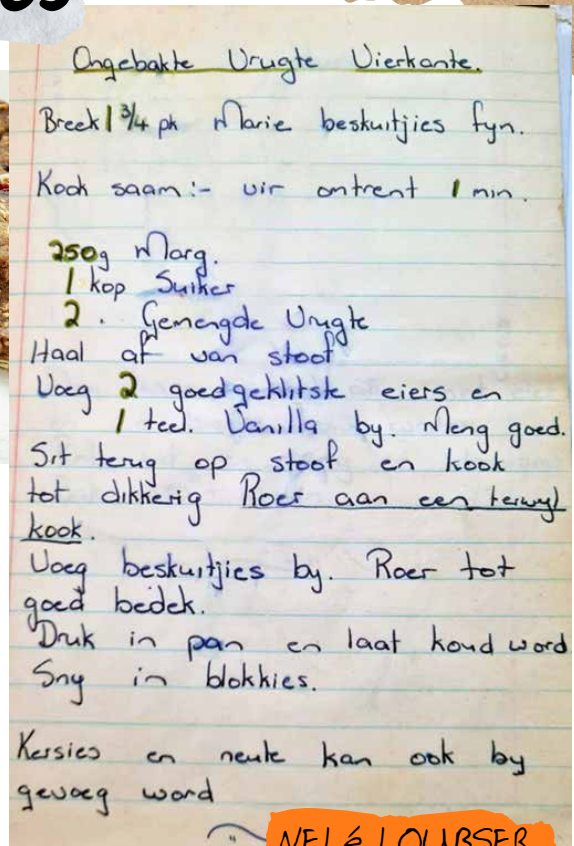 Ongebakte Vrugte Vierkante.
Breek 1 3/4 pk Marie beskuitjies fyn.
Kook saam:- vir omtrent 1 min.
250g Marg.
1 kop Suiker
2 . Gemengde Vrugte
Haal af van stoof
Voeg 2 goedgeklitste eiers en
1 teel. Vanilla by. Meng goed.
Sit terug op stoof en kook
tot dikkerig Roer aan een terwyl
kook.
Voeg beskuitjies by. Roer tot
goed bedek.
Druk in pan en laat koud word
Sny in blokkies.
Kersies en neute kan ook by
gevoeg word
NELÉ LOUBSER